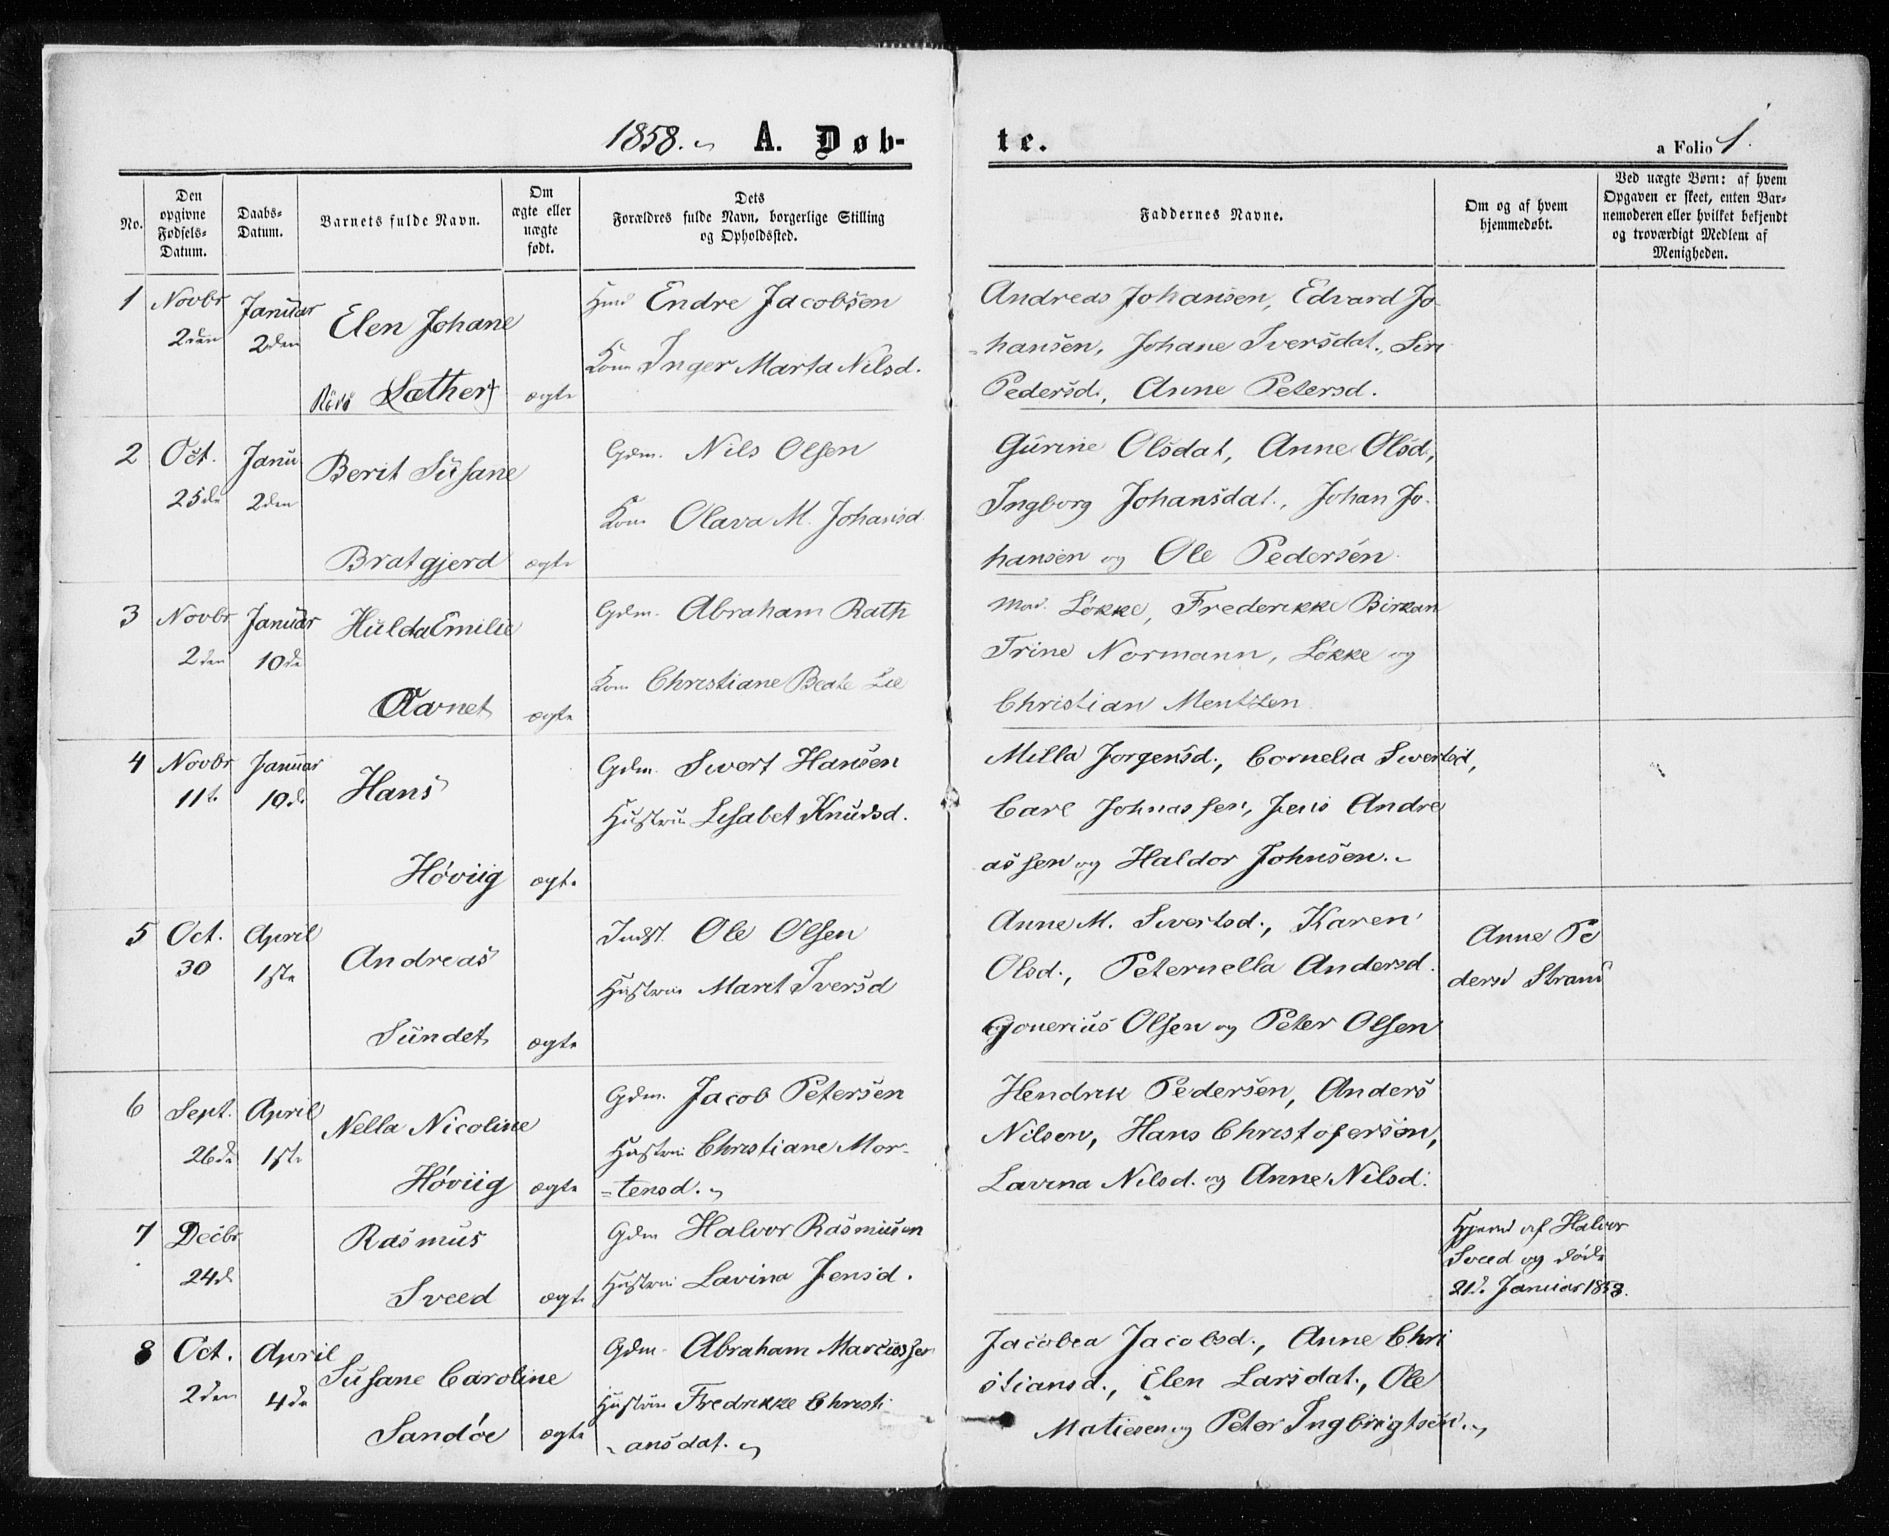 1858. A. Døb-
te.
a Folio 1.
No.
Den
opgivne
Fødsels-
Datum.
Daabs-
Datum.
Barnets fulde Navn.
Om
ægte eller
uægte
født.
Dets
Forældres fulde Navn, borgerlige Stilling
og Opholdssted.
Faddernes Navne.
Om og af hvem
hjemmedøbt.
Ved uægte Børn: af hvem
Opgaven er skeet, enten Bar-
nemoderen eller hvilket bekjendt
og troværdigt Medlem af
Menigheden.
1
Novbr
2den
Januar
2den
Elen Johane
Sæther
ægte
Endre Jacobsen
Kone Inger Marta Nilsd.
Andreas Johansen, Edvard Jo-
-hansen, Johane Iversdat., Siri
Pedersd., Anne Petersd.
2
Oct.
25de
Janu
2den
Berit Susane
Bratgjerd
ægte
Gdm. Nils Olsen
Kone Olava M. Johansd.
Gurine Olsdat, Anne Olsd,
Ingborg Johansdat., Johan Jo-
hansen og Ole Pedersen.
3
Novbr
2den
Januar
10de
Hulda Emilie
Aarnet
ægte
Gdm. Abraham Rath
Kone Christiane Beate Lie
Mad. Løkke, Frederikke Birkan
Trine Normann, Løkke og
Christian Mentzen
4
Novbr
11t.
Januar
10d.
Hans
Høviig
ægte
Gdm. Sivert Hansen
Hustru Lisabet Knudsd.
Milla Jorgensd., Cornelia Sivertsd,
Carl Johnassen, Jens Andre
assen og Haldor Johnsen.
5
Oct.
30
April
1ste
Andreas
Sundet
ægte
Indst. Ole Olsen
Hustrue Marit Iversd
Anne M. Sivertsd., Karen
Olsd., Peternella Andersd.
Gonerius Olsen og Peter Olsen
Anne Pe
dersd Strand
6
Sept.
26de
April
1ste
Nella Nicoline
Høviig
ægte
Gdm. Jacob Petersen
Hustrue Christiane Mor-
-tensd.
Hendrik Pedersen, Anders
Nilsen, Hans Christofersen,
Lavina Nilsd. og Anne Nilsd.
7
Decbr
24d
Rasmus
Sveed
ægte
Gdm Halvor Rasmusen
Hustrue Lavina Jensd.
Hjemd af Halvor
Sveed og døde
21d. Januar 1858.
8
Oct.
2den
April
4de
Susane Caroline
Sandøe
ægte
Gdm. Abraham Marcussen
Hustrue Fredrikke Christi
-ansdat.
Jacobea Jacobsd., Anne Chri
stiansd., Elen Larsdat., Ole
Matiesen og Peter Ingbrigtsen.